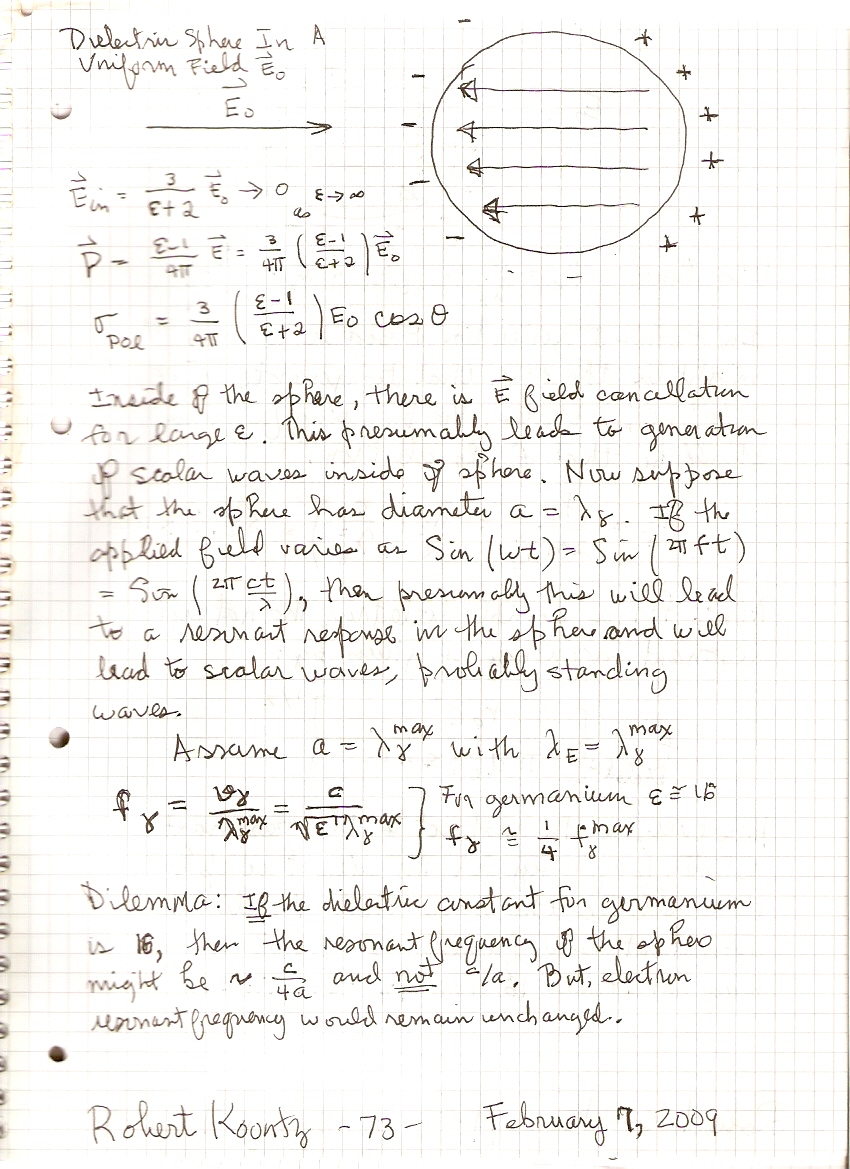 Dielectric Sphere In A
Uniform Field E⃗₀
E⃗₀
E⃗in = 3/(ε+2) E⃗₀ → 0 as ε→∞
P⃗ = (ε-1)/4π E⃗ = 3/4π ((ε-1)/(ε+2)) E⃗₀
σpol = 3/4π ((ε-1)/(ε+2)) E₀ cos θ
Inside of the sphere, there is E⃗ field cancellation
for large ε. This presumably leads to generation
of scalar waves inside of sphere. Now suppose
that the sphere has diameter a = λγ. If the
applied field varies as Sin (ωt) = Sin (2πft)
= Sin (2π ct/λ), then presumably this will lead
to a resonant response in the sphere and will
lead to scalar waves, probably standing
waves.
Assume a = λγ^max with λE = λγ^max
fγ = vγ/λγ^max = c/(√ε λγ^max) } For germanium ε ≅ 16
fγ ≅ 1/4 fγ^max
Dilemma: If the dielectric constant for germanium
is 16, then the resonant frequency of the sphere
might be ~ c/4a and not c/a. But, electron
resonant frequency would remain unchanged.
Robert Koontz - 73 - February 7, 2009